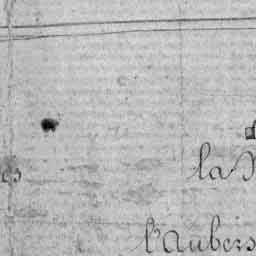 es
la
l'Aubers